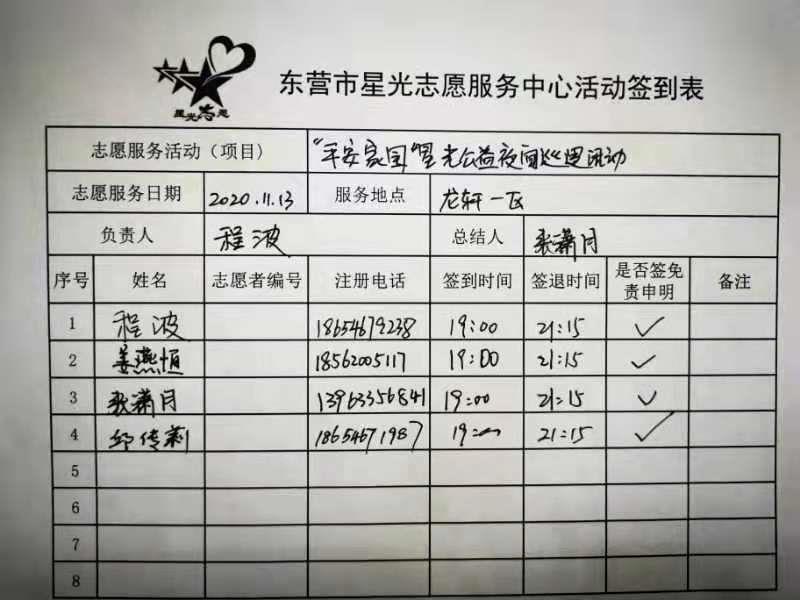 星光志愿
东营市星光志愿服务中心活动签到表
志愿服务活动（项目） “平安家园”星光公益夜间巡逻活动
志愿服务日期 2020.11.13 服务地点 龙轩一区
负责人 程波 总结人 张潇月
序号 姓名 志愿者编号 注册电话 签到时间 签退时间 是否签免责申明 备注
1 程波 18654679238 19:00 21:15 ✓
2 姜燕恒 18562005117 19:00 21:15 ✓
3 张潇月 13963356841 19:00 21:15 ✓
4 邱传莉 18654671987 19: 21:15 ✓
5
6
7
8